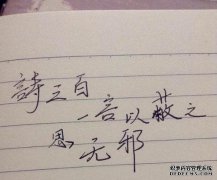 詩三百
一言以蔽之
思无邪